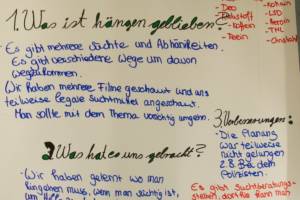 1. Was ist hängen geblieben?
Es gibt mehrere Süchte und Abhänikeiten.
Es gibt verschiedene Wege um davon
wegzukommen.
Wir haben mehrere Filme geschaut und uns
teilweise legale Suchtmittel angeschaut.
Man sollte mit dem Thema vorsichtig umgehen.
2. Was hat es uns gebracht?
- Wir haben gelernt wo man
hingehen muss, wenn man süchtig ist,
um
- Deo
- Klebstoff
- Koffein
- Teein
- Kokain
- LSD
- Heroin
- THC
- Christal
3. Verbesserungen:
- Die Planung
war teilweise
nicht gelungen
z.B. Bei dem
Polizisten.
Es gibt Suchtberatungs-
stellen, dort hin kann man